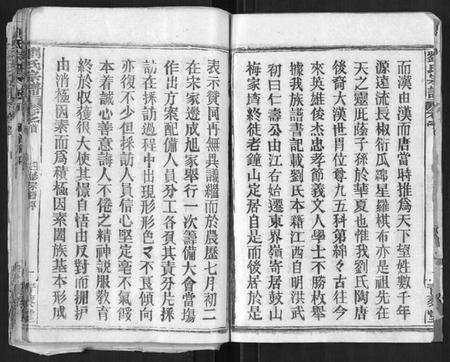 而漢由漢而唐當時推爲天下望姓數千年
源遠流長椒衍瓜緜星羅棋布亦是祖先在
天之靈庇蔭子孫於華夏也惟我劉氏陶唐
後裔大漢世胄位尊九五科第綿々古往今
來英雄俊杰忠孝節義文人學士不勝枚舉
據我族譜書記載劉氏本籍江西自明洪武
初曰仁壽公由江右始遷東界嶺寄居鼓山
梅家塆終徙老鐘山定居自是而後居於是
表示贊同再無異議繼而於農歷七月初二
在宋家邊成旭家舉行一次籌備大會當塲
作出方案配備人員分工各負其責分片採
訪在採訪過程中出現形形色々不良傾向
亦復不少但採訪人員信心堅定毫不氣餒
本着誠心善意誨人不倦之精神說服敎育
終於收獲很大使其憬自悟由反對而擁护
由消極因素而爲積極因素闔族基本形成